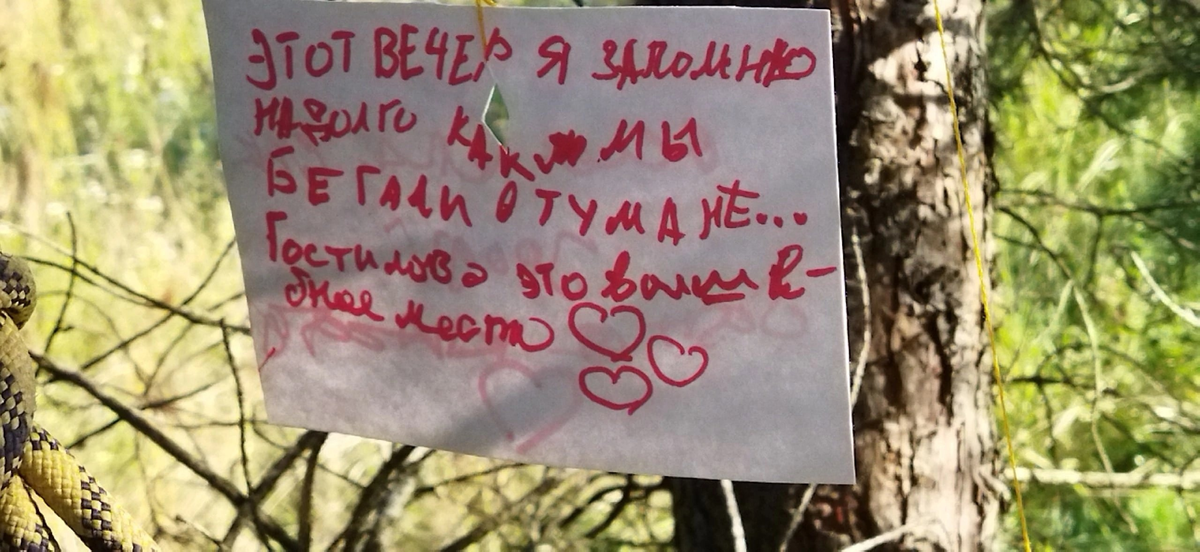 ЭТОТ ВЕЧЕР Я ЗАПОМНЮ
НАДОЛГО КАК МЫ
БЕГАЛИ О ТУМАНЕ...
Гостилово это волшеб-
бное место